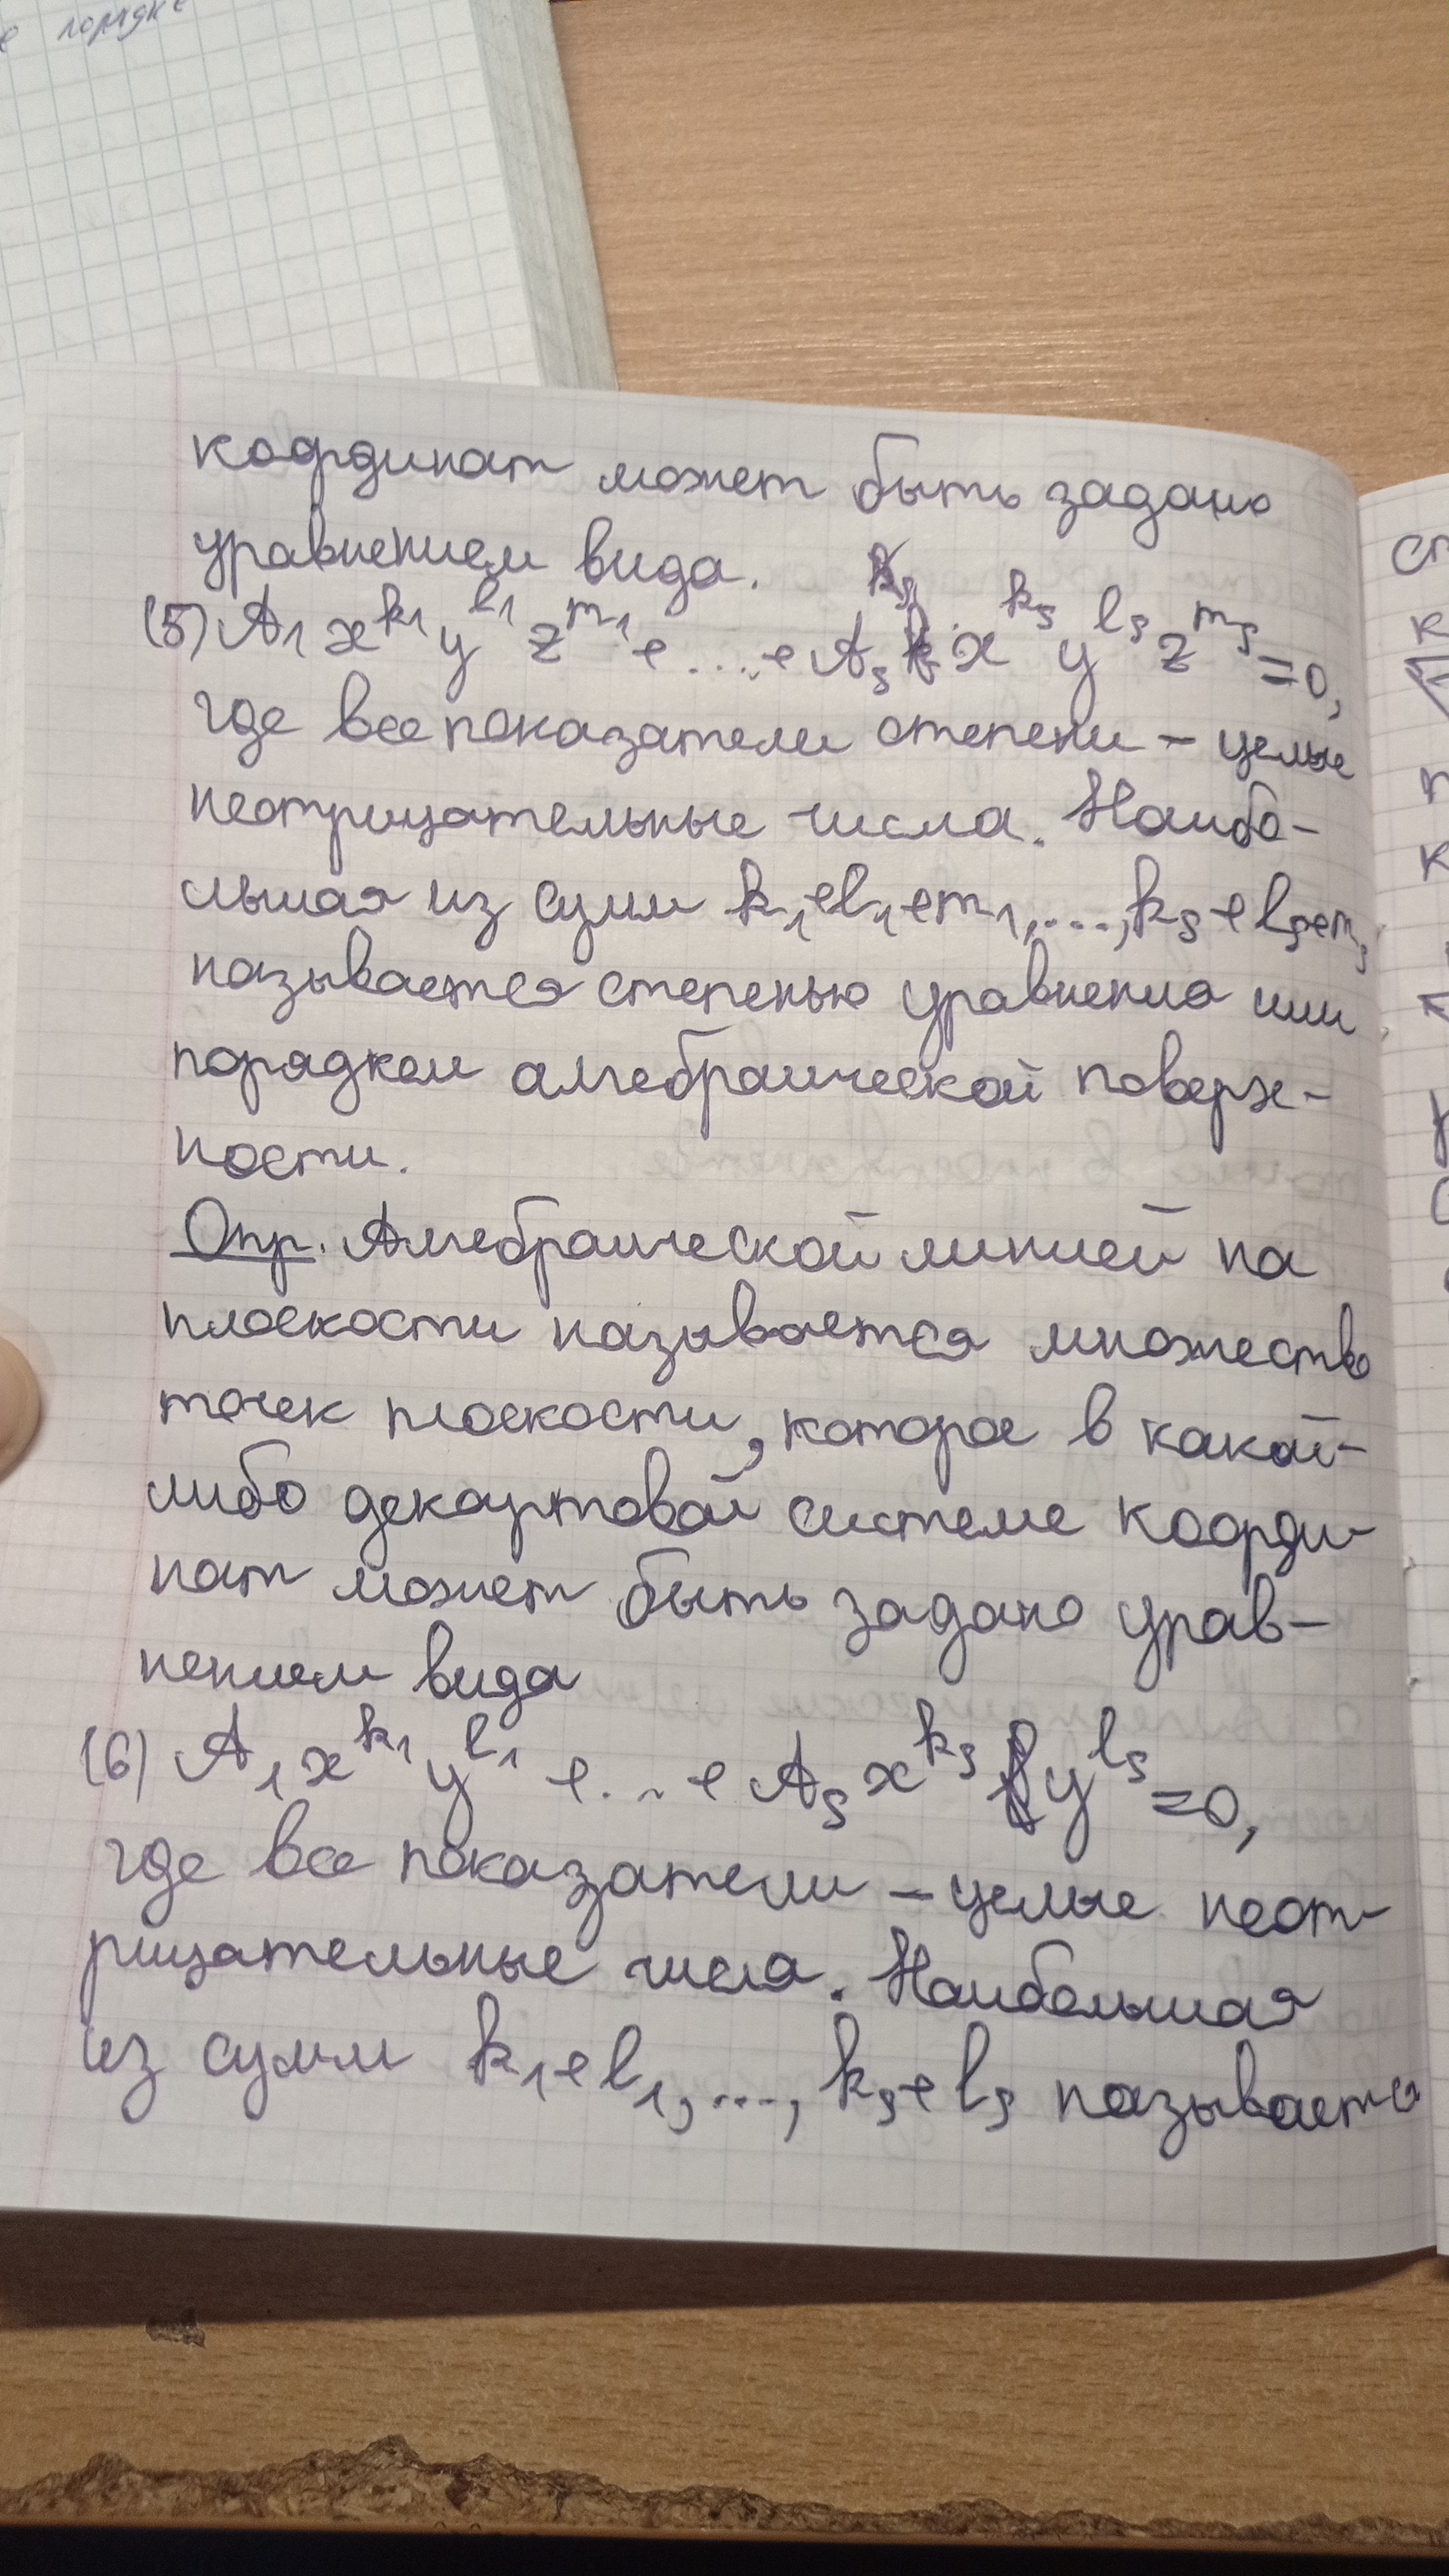 порядке
координат может быть задано
уравнением вида.
(5) A₁x^k₁ y^l₁ z^m₁ + .... + Aₛ x^kₛ y^lₛ z^mₛ = 0,
где все показатели степени – целые
неотрицательные числа. Наибо-
льшая из сумм k₁+l₁+m₁,...,kₛ+lₛ+mₛ
называется степенью уравнения или
порядком алгебраической поверх-
ности.
Опр. Алгебраической линией на
плоскости называется множество
точек плоскости, которое в какой-
либо декартовой системе коорди-
нат может быть задано урав-
нением вида
(6) A₁x^k₁ y^l₁ + ... + Aₛ x^kₛ y^lₛ = 0,
где все показатели – целые неот-
рицательные числа. Наибольшая
из сумм k₁+l₁,...,kₛ+lₛ называется